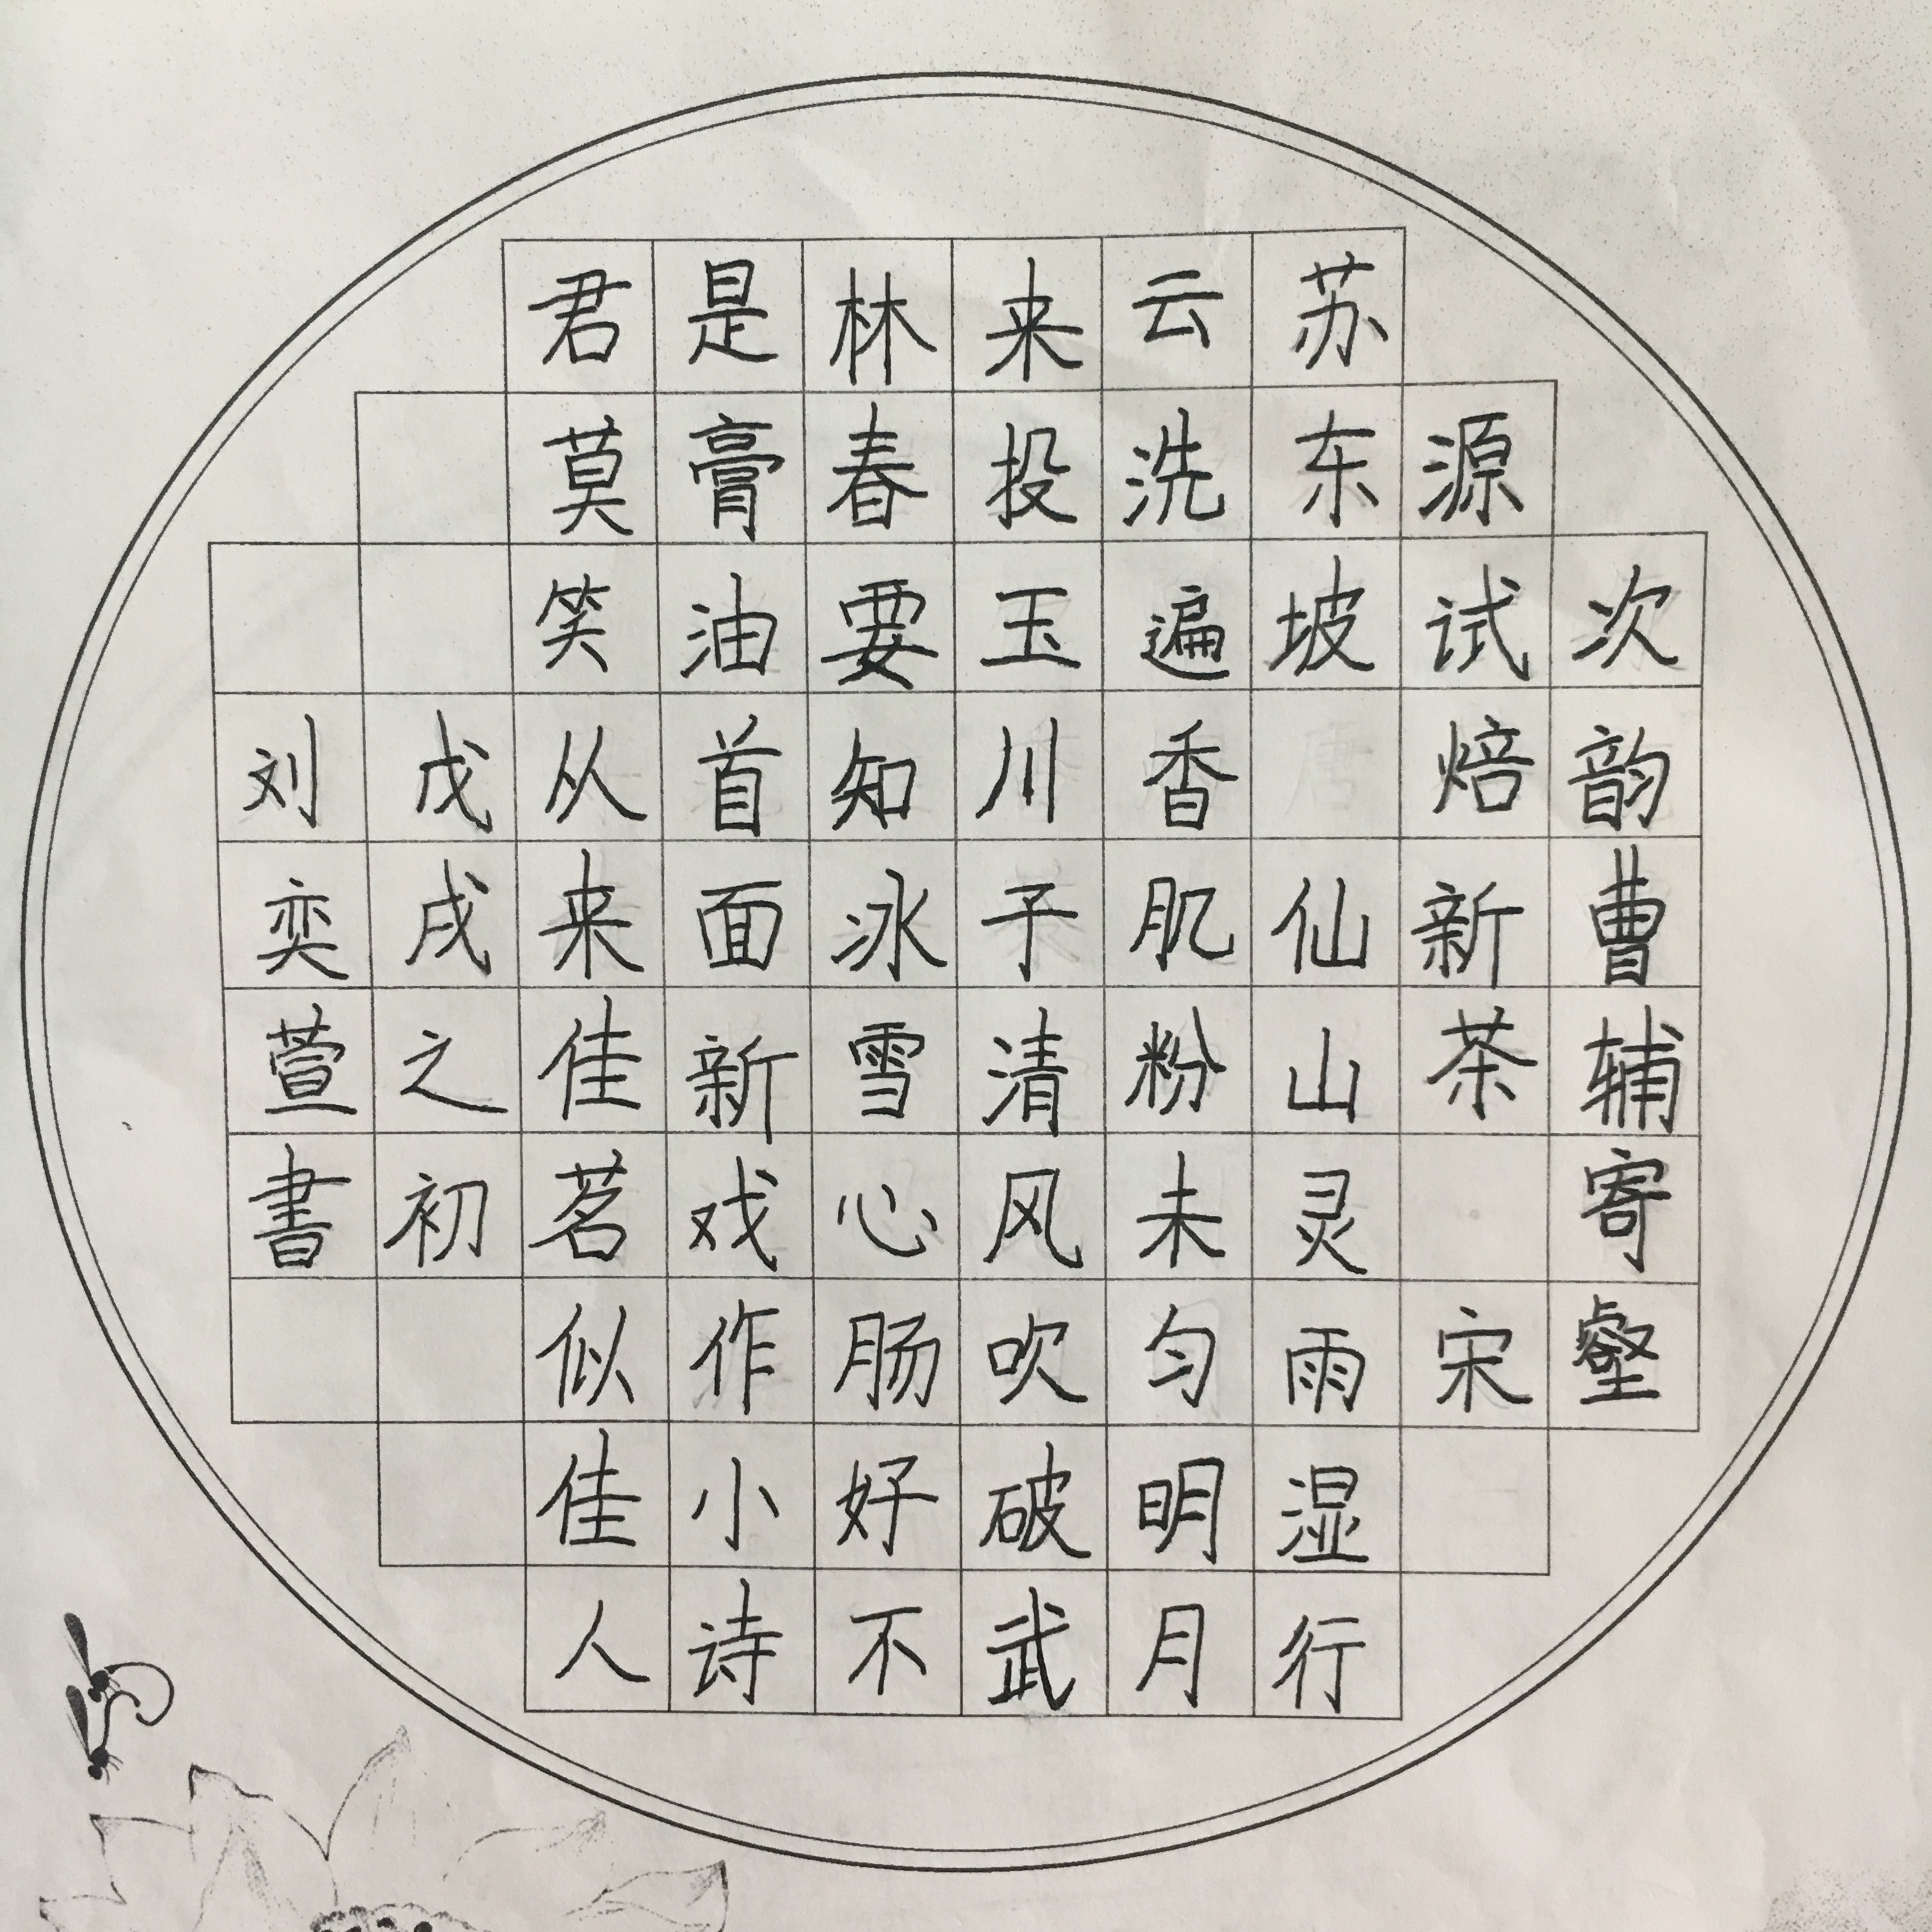 次韵曹辅寄壑
源试焙新茶 宋
苏东坡 仙山灵雨湿行
云洗遍香肌粉未匀明月
来投玉川子清风吹破武
林春要知冰雪心肠好不
是膏油首面新戏作小诗
君莫笑从来佳茗似佳人
戊戌之初
刘奕萱書